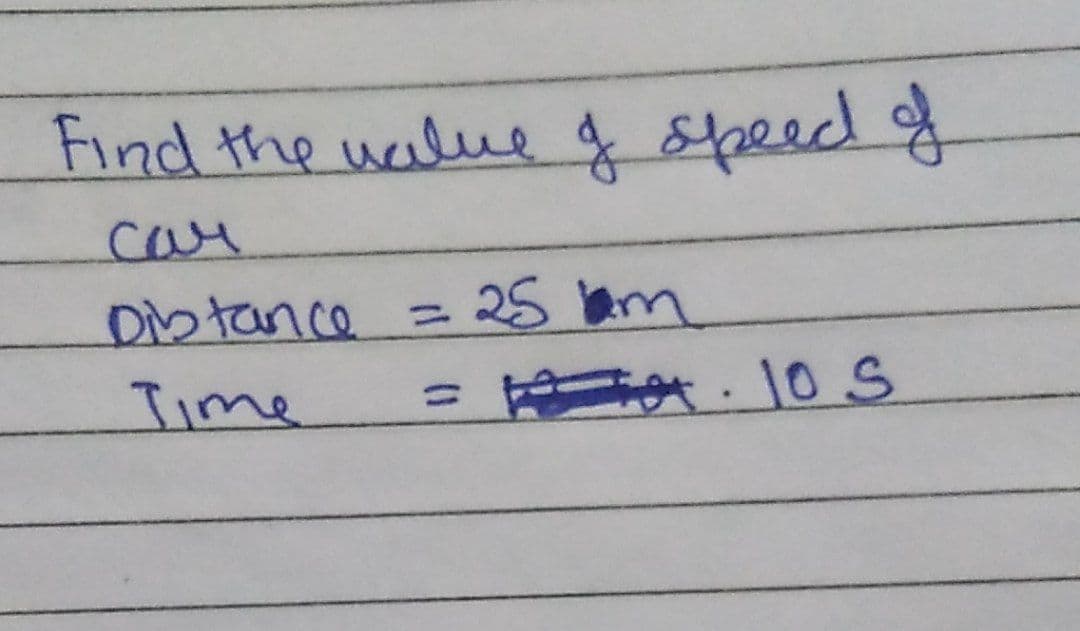 Find the value of speed of
car
Distance = 25 km
Time = . 10 S